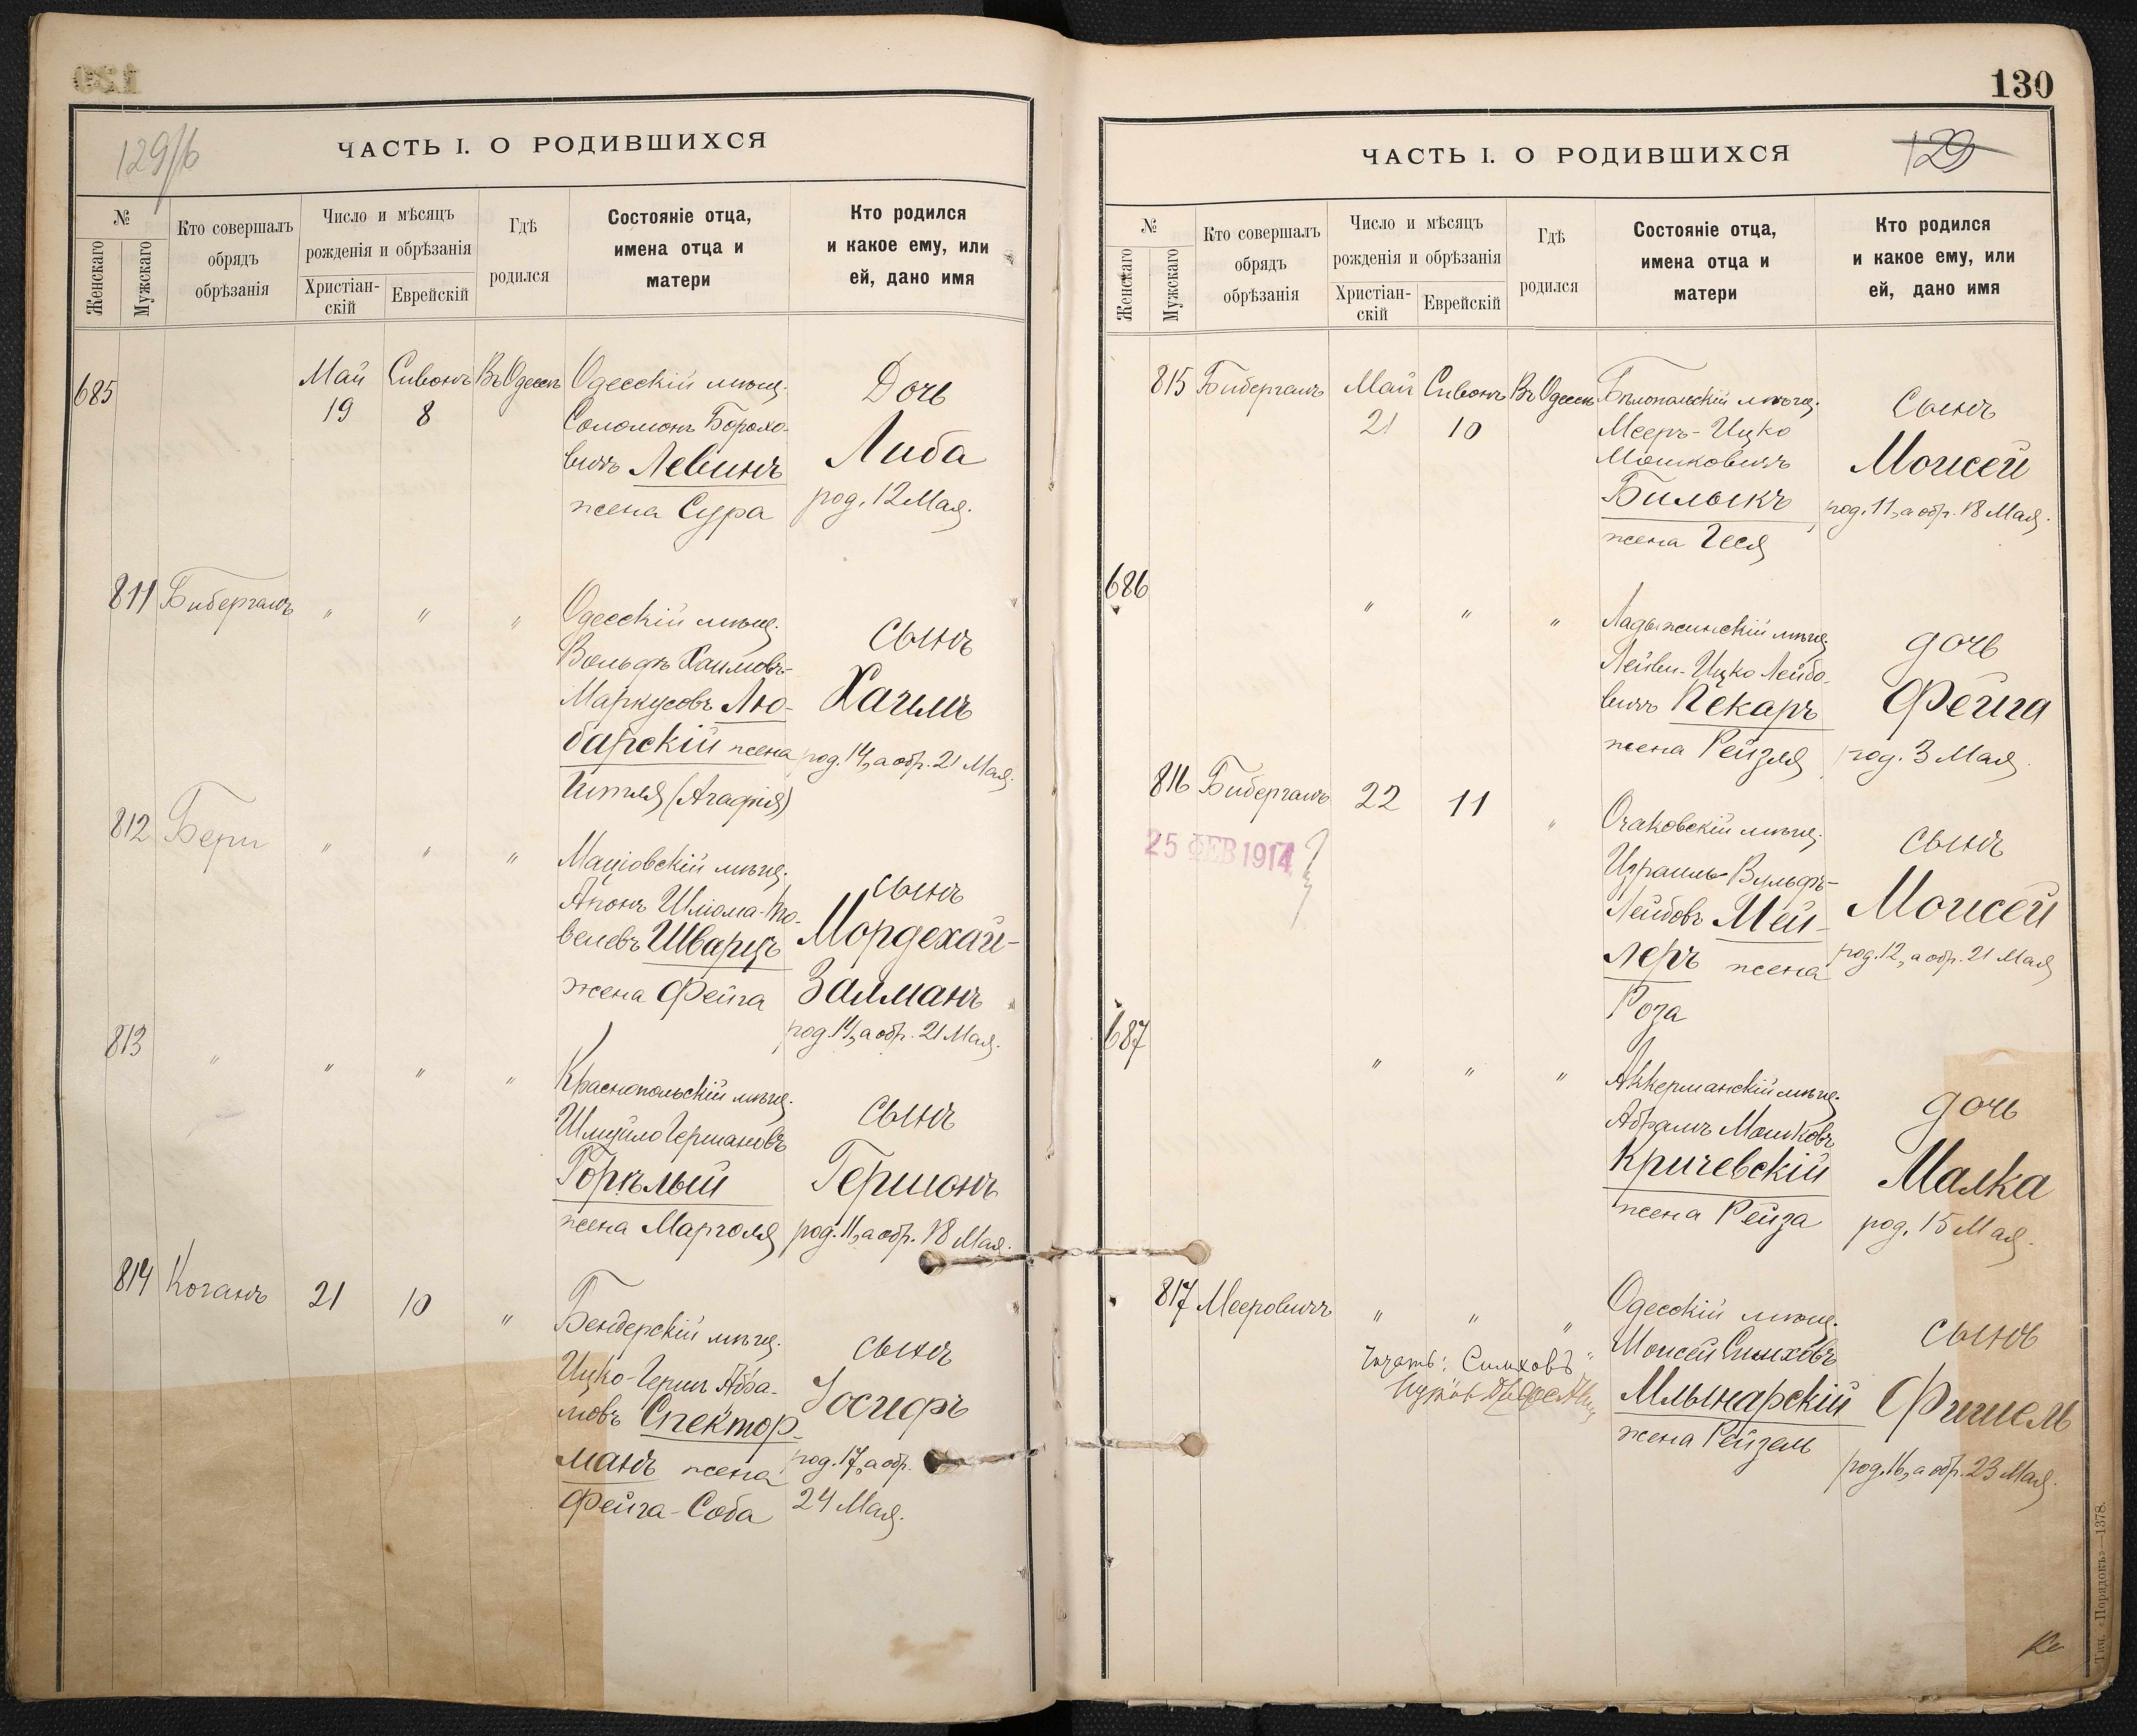 129/б
ЧАСТЬ I. О РОДИВШИХСЯ
№
Женскаго
Мужскаго
Кто совершалъ
обрядъ
обрѣзанія
Число и мѣсяцъ
рожденія и обрѣзанія
Христіан-
скій
Еврейскій
Гдѣ
родился
Состояніе отца,
имена отца и
матери
Кто родился
и какое ему, или
ей, дано имя
685
Май Сивонъ Въ Одессѣ Одесскій мѣщ. Дочь
19 8 Соломонъ Борохо-
вичъ Левинъ Либа
жена Сура род. 12 Мая.
811 Бибергалъ " " " Одесскій мѣщ. сынъ
Вольфъ Хаимовъ-
Маркусовъ Лю- Хаимъ
барскій жена род. 14, а обр. 21 Мая.
Ципля (Агафія)
812 Бери " " " Маціовскій мѣщ. сынъ
Шліома-То-
велевъ Шварцъ Мордехай-
жена Фейга Залманъ
род. 14, а обр. 21 Мая.
813 " " " " Краснопольскій мѣщ. сынъ
Шмуйло Германовъ
Горѣлый Гершонъ
жена Марголя род. 11, а обр. 18 Мая.
814 Коганъ 21 10 " Бендерскій мѣщ. сынъ
Ицко-Герш Абра-
мовъ Спектор- Іосифъ
манъ жена род. 17, а обр.
Фейга-Соба 24 Мая.
130
129
ЧАСТЬ I. О РОДИВШИХСЯ
№
Женскаго
Мужскаго
Кто совершалъ
обрядъ
обрѣзанія
Число и мѣсяцъ
рожденія и обрѣзанія
Христіан-
скій
Еврейскій
Гдѣ
родился
Состояніе отца,
имена отца и
матери
Кто родился
и какое ему, или
ей, дано имя
815 Бибергалъ Май Сивонъ Въ Одессѣ Бѣлопольскій мѣщ. сынъ
21 10 Мееръ-Ицко
Мошковичъ Моисей
Билыкъ род. 11, а обр. 18 Мая.
жена Геся
686
" " " Ладыжинскій мѣщ. дочь
Лейви-Ицко Лейбо-
вичъ Пекаръ Фейга
жена Рейзля род. 3 Мая.
816 Бибергалъ 22 11 " Очаковскій мѣщ. сынъ
25 ФЕВ 1914
Израиль Вульфъ-
Лейбовъ Мей- Моисей
леръ жена род. 12, а обр. 21 Мая
Роза
687
" " " Аккерманскій мѣщ. дочь
Абрамъ Мошковъ
Кричевскій Малка
жена Рейза род. 15 Мая.
817 Мееровичъ " " " Одесскій мѣщ. сынъ
Моисей Симховъ
Читать: „Симховъ"
Млынарскій Фишель
жена Рейзель род. 16, а обр. 23 Мая.
Тип. «Порядокъ»—1378.